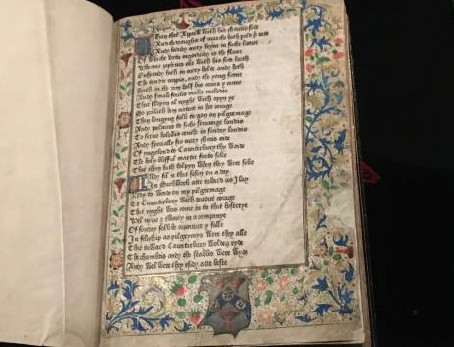 Whan that Apprill with his shouris sote
And the droughte of marche hath percid þe rote
And badid euery veyne in suche licour
Of whiche vertu engendrid is the flour
Whanne zepherus eke with his sote breth
Enspirid hath in euery holte and heth
The tendir croppes and the yong sonne
Hath in the ram half his cours y ronne
And smale foulis make melodie
That slepyn al nyght with opyn eye
So prikith hem nature in her corage
Than longyng folk to gon on pilgremage
And palmers to seche straunge londis
To serue halowis couthe in sondry londis
And specially fro euery shiris ende
Of yngelond to Cauntirbury thy wende
The holy blisful martir forto seke
That them hath holpyn when they were seke
And fil in that seson on a day
In Suthwerk atte tabard as I lay
Redy to wende on my pilgremage
To Cauntirbury with deuout corage
That nyght was come in to that hosterye
Wel nyne & twenty in a companye
Of sondry folk be auenture y falle
In feleship as pilgrymys were they alle
That toward Cauntirbury wolden ryde
The chambres and the stablis were wyde
And wel were they esid atte beste